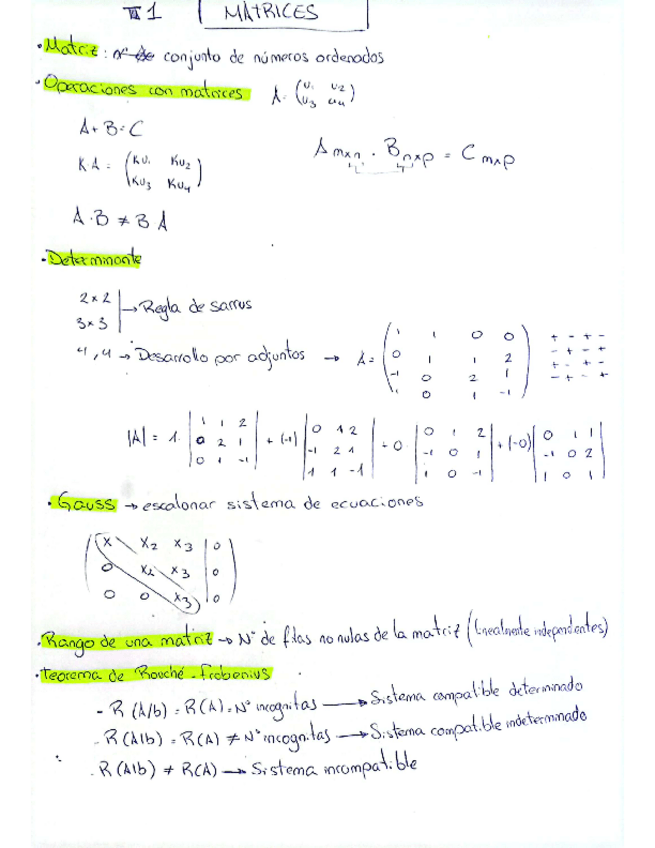 T1 MATRICES
• Matriz: nº de conjunto de números ordenados
• Operaciones con matrices A = (u1 u2
u3 u4)
A + B = C
KA = (Ku1 Ku2
Ku3 Ku4)
Amxn · Bnxp = Cmxp
A·B ≠ B A
• Determinante
2x2
3x3 → Regla de sarrus
4,4 → Desarrollo por adjuntos → A = (1 1 0 0 + - + -
0 1 1 2 - + - +
-1 0 2 1 + - + -
1 0 1 -1) - + - +
|A| = 1· |1 1 2| + (-1) |0 1 2| + 0 |0 1 2| + (-0) |0 1 1|
|0 2 1| |-1 2 1| |-1 0 1| |-1 0 2|
|0 1 -1| |1 1 -1| |1 0 -1| |1 0 1|
• Gauss → escalonar sistema de ecuaciones
(x x2 x3 | 0
0 x2 x3 | 0
0 0 x3 | 0)
• Rango de una matriz → Nº de filas no nulas de la matriz (linealmente independentes)
• Teorema de Rouché-Frobenius
- R(A/b) = R(A) = Nº incognitas → Sistema compatible determinado
- R(A|b) = R(A) ≠ Nº incognitas → Sistema compatible indeterminado
- R(A|b) ≠ R(A) → Sistema incompatible